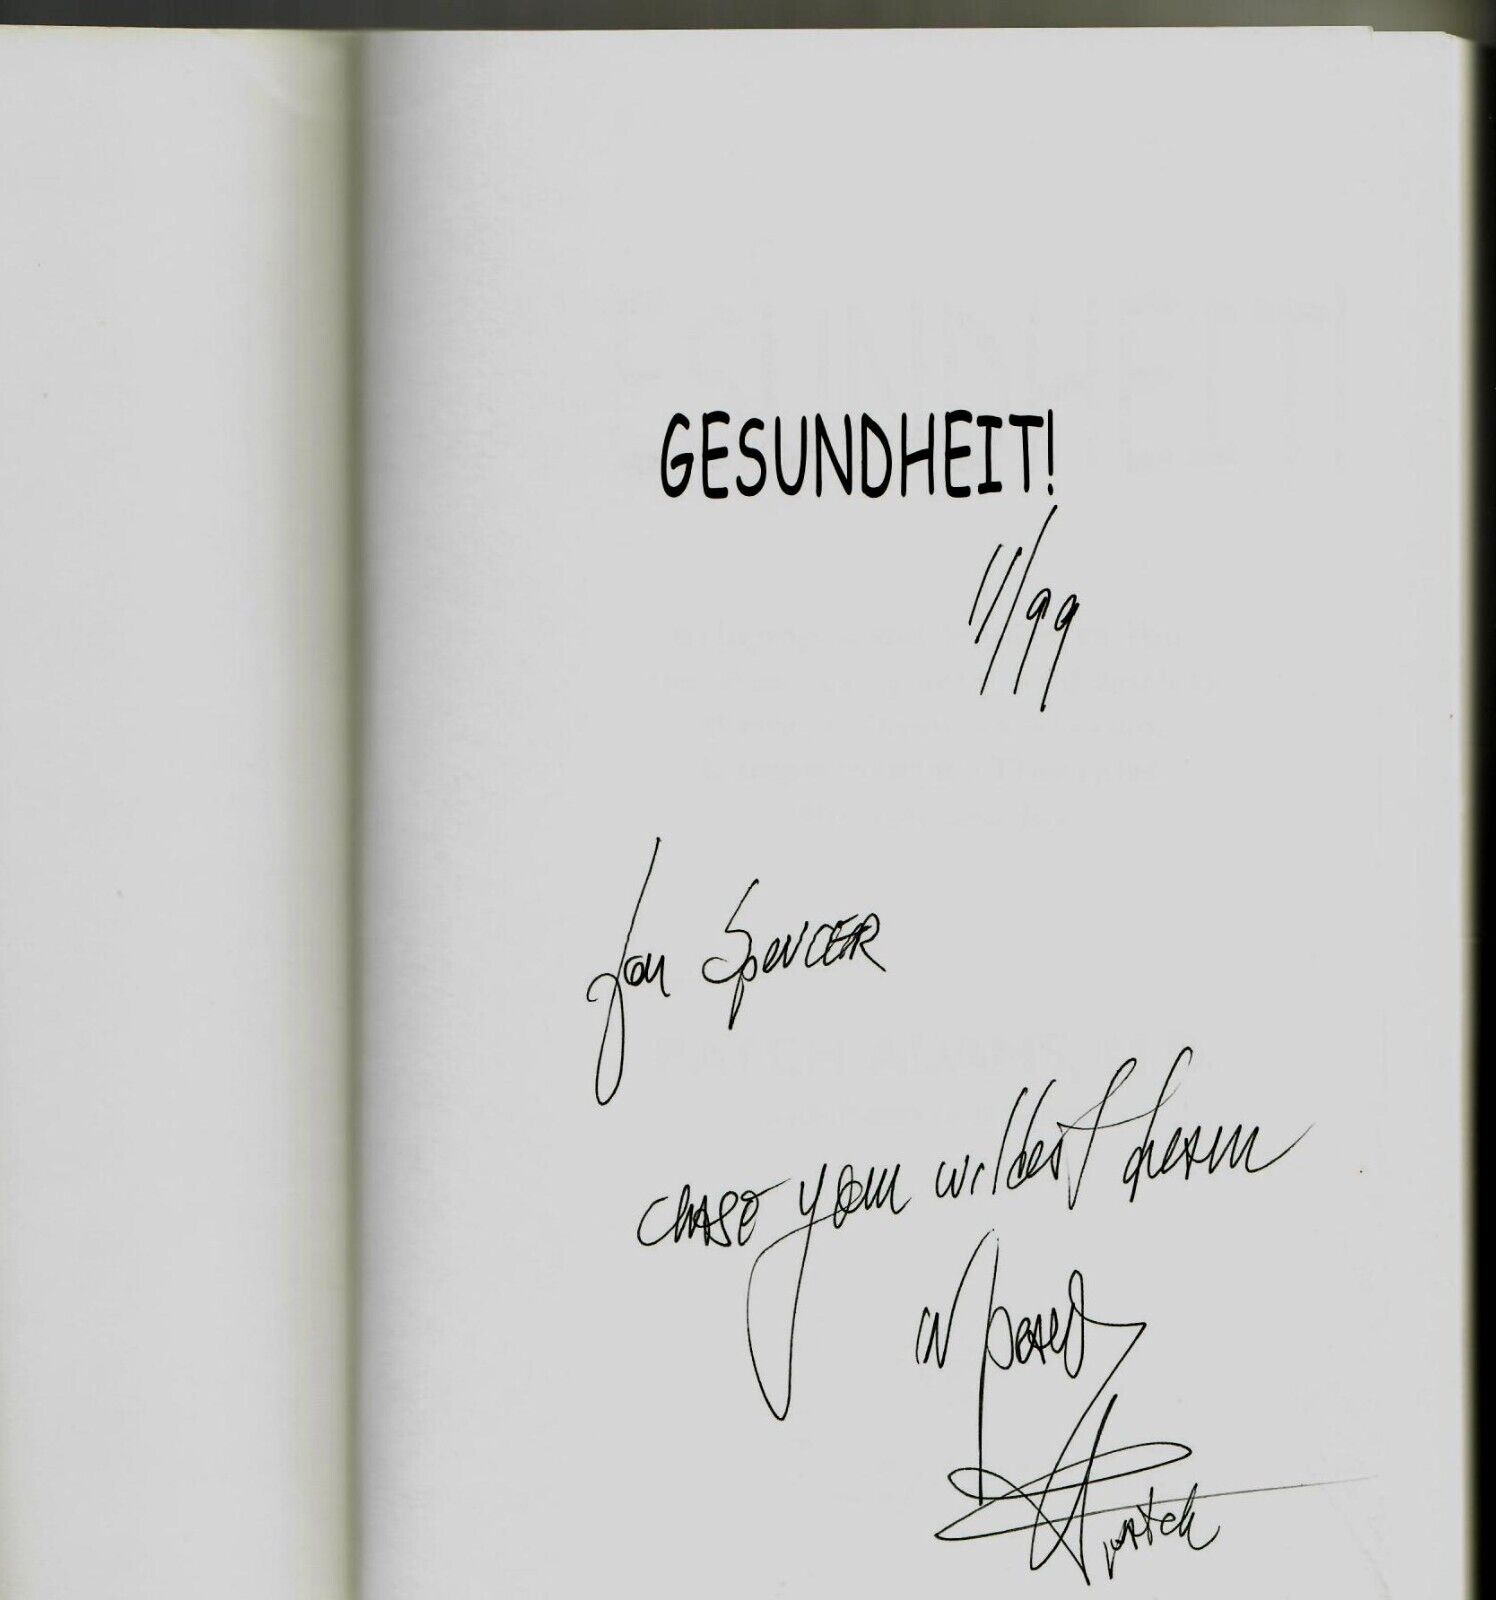 GESUNDHEIT!
11/99
Jon Spencer
chase your wildest dream
in peace
Patch